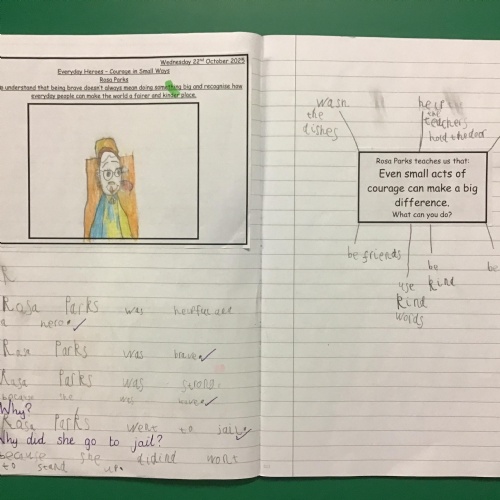 Wednesday 22nd October 2025
Everyday Heroes – Courage in Small Ways
Rosa Parks
understand that being brave doesn't always mean doing something big and recognise how
everyday people can make the world a fairer and kinder place.
R
Rosa Parks was helpful and
a hero.
Rosa Parks was brave
Rosa Parks was strong.
because she was brave
Why?
Rosa Parks went to jail
Why did she go to jail?
because she didind wont
to stand up.
wash
the
dishes
help
the
teachers
hold the door
Rosa Parks teaches us that:
Even small acts of
courage can make a big
difference.
What can you do?
be friends
use
kind
words
be
kind
be